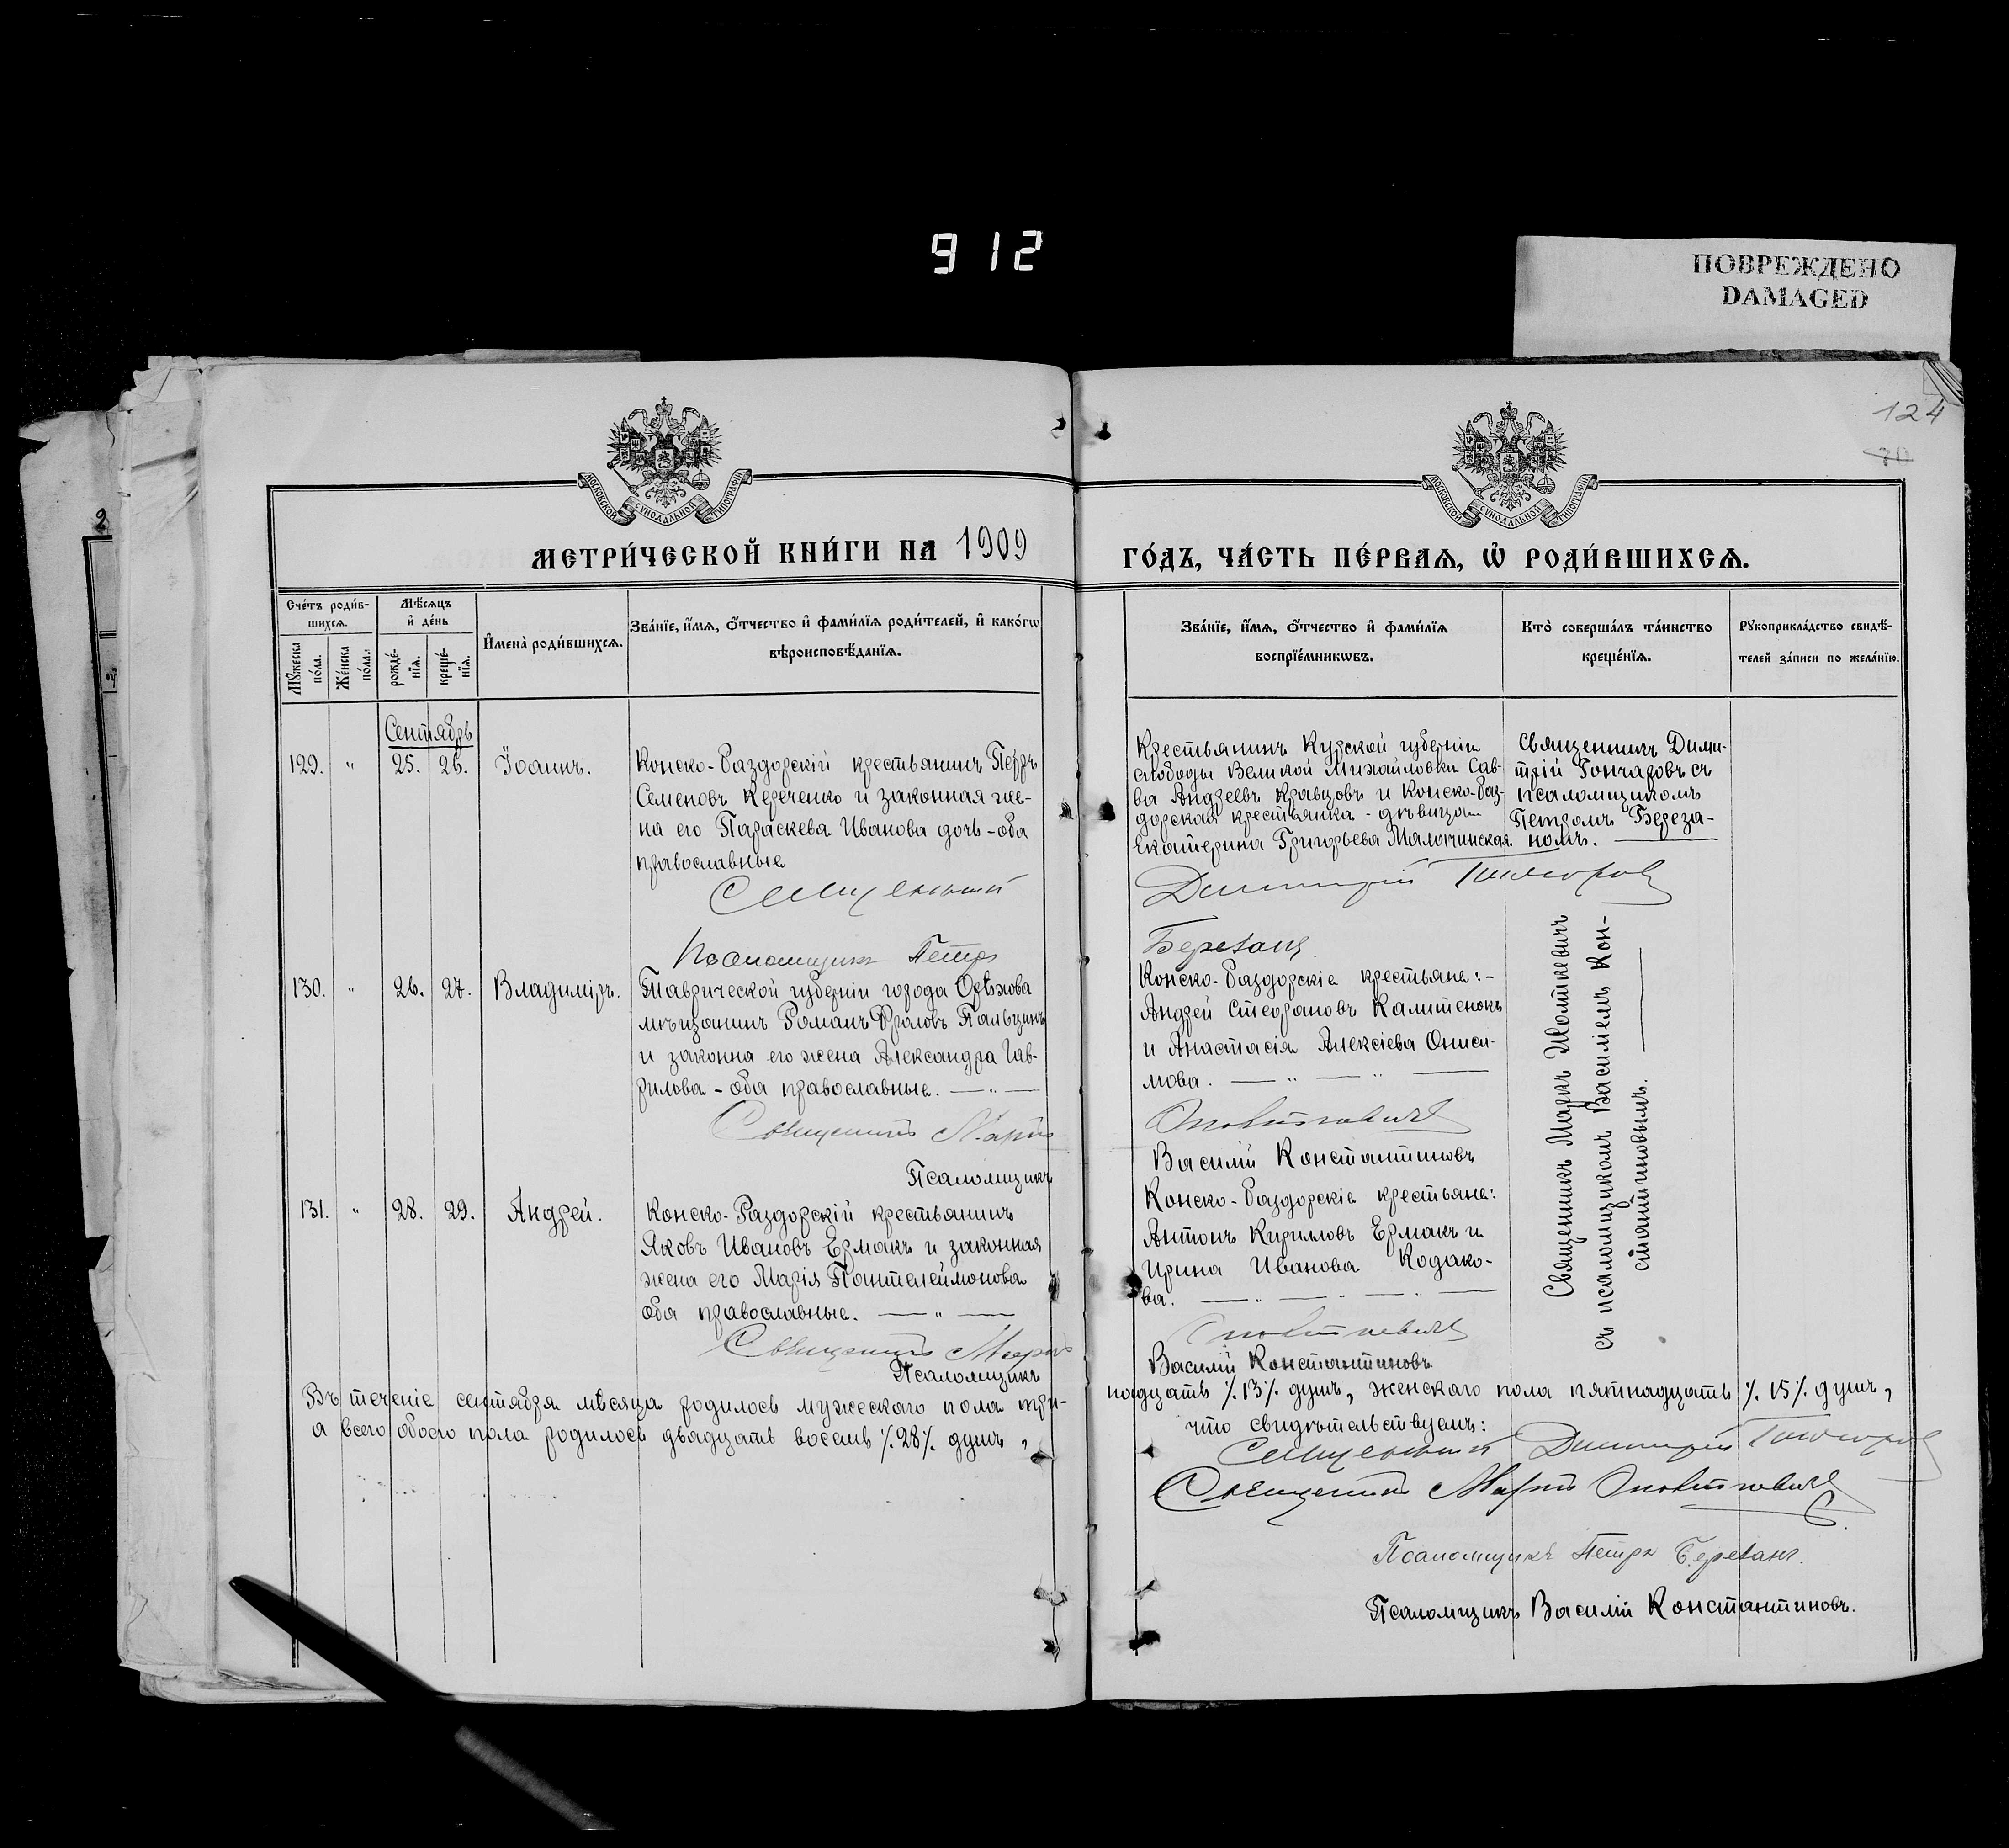 912
ПОВРЕЖДЕНО
DAMAGED
124
2
МОСКОВСКОЙ СѴНОДАЛЬНОЙ ТИПОГРАФІИ
МОСКОВСКОЙ СѴНОДАЛЬНОЙ ТИПОГРАФІИ
МЕТРИ́ЧЕСКОЙ КНИ́ГИ НА 1909
ГО́ДЪ, ЧА́СТЬ ПЕ́РВАѦ, Ѽ РОДИ́ВШИХСѦ.
Сче́тъ роди́в-
шихсѧ.
Мꙋжеска
по́ла.
Же́нска
по́ла.
Мѣ́сѧцъ
и҆ де́нь
рожде́-
нїѧ.
креще́-
нїѧ.
И҆мена̀ роди́вшихсѧ.
Зва́нїе, и҆́мѧ, ѻ҆́тчество и҆ фами́лїѧ роди́телей, и҆ како́гѡ
вѣроисповѣ́данїѧ.
Зва́нїе, и҆́мѧ, ѻ҆́тчество и҆ фами́лїѧ
воспрїе́мникѡвъ.
Кто̀ соверша́лъ та́инство
креще́нїѧ.
Рꙋкоприкла́дство свидѣ́-
телей за́писи по жела́нїю.
Сентябрь
129. " 25. 26. Іоаннъ.
Конско-Раздорскій крестьянинъ Петръ
Семеновъ Кереченко и законная же-
на его Параскева Иванова дочь - оба
православные
Священникъ
Псаломщикъ Петръ
Крестьянинъ Курской губерніи
слободы Великой Михайловки Сав-
ва Андреевъ Кравцовъ и Конско-Раз-
дорская крестьянка - дѣвица
Екатерина Григорьева Малочинская.
Димитрій Гончаровъ
Березанъ
Священникъ Дими-
трій Гончаровъ съ
псаломщикомъ
Петромъ Береза-
номъ.
130. " 26. 27. Владиміръ.
Таврической губерніи города Орѣхова
мѣщанинъ Романъ Фроловъ Пальцинъ
и законна его жена Александра Гав-
рилова - оба православные. — " —
Священникъ Маркъ
Псаломщикъ
Конско-Раздорскіе крестьяне:-
Андрей Стефановъ Калитенокъ
и Анастасія Алексіева Ониси-
мова. — " — " —
Василій Константиновъ
Священникъ Маркъ
съ псаломщикомъ Василіемъ Кон-
стантиновымъ.
131. " 28. 29. Андрей.
Конско-Раздорскій крестьянинъ
Яковъ Ивановъ Ермакъ и законная
жена его Марія Понтелеймонова
оба православные. — " —
Священникъ Маркъ
Псаломщикъ
Конско-Раздорскіе крестьяне:
Антонъ Кирилловъ Ермакъ и
Ирина Иванова Кодако-
ва. — " — " — " —
Василій Константиновъ
Въ теченіе сентября мѣсяца родилось мужескаго пола три-
надцать ٪13٪ душъ, женскаго пола пятнадцать ٪15٪ душъ,
а всего обоего пола родилось двадцать восемь ٪28٪ душъ,
что свидѣтельствуемъ:
Священникъ Димитрій Гончаровъ
Священникъ Маркъ
Псаломщикъ Петръ Березанъ.
Псаломщикъ Василій Константиновъ.